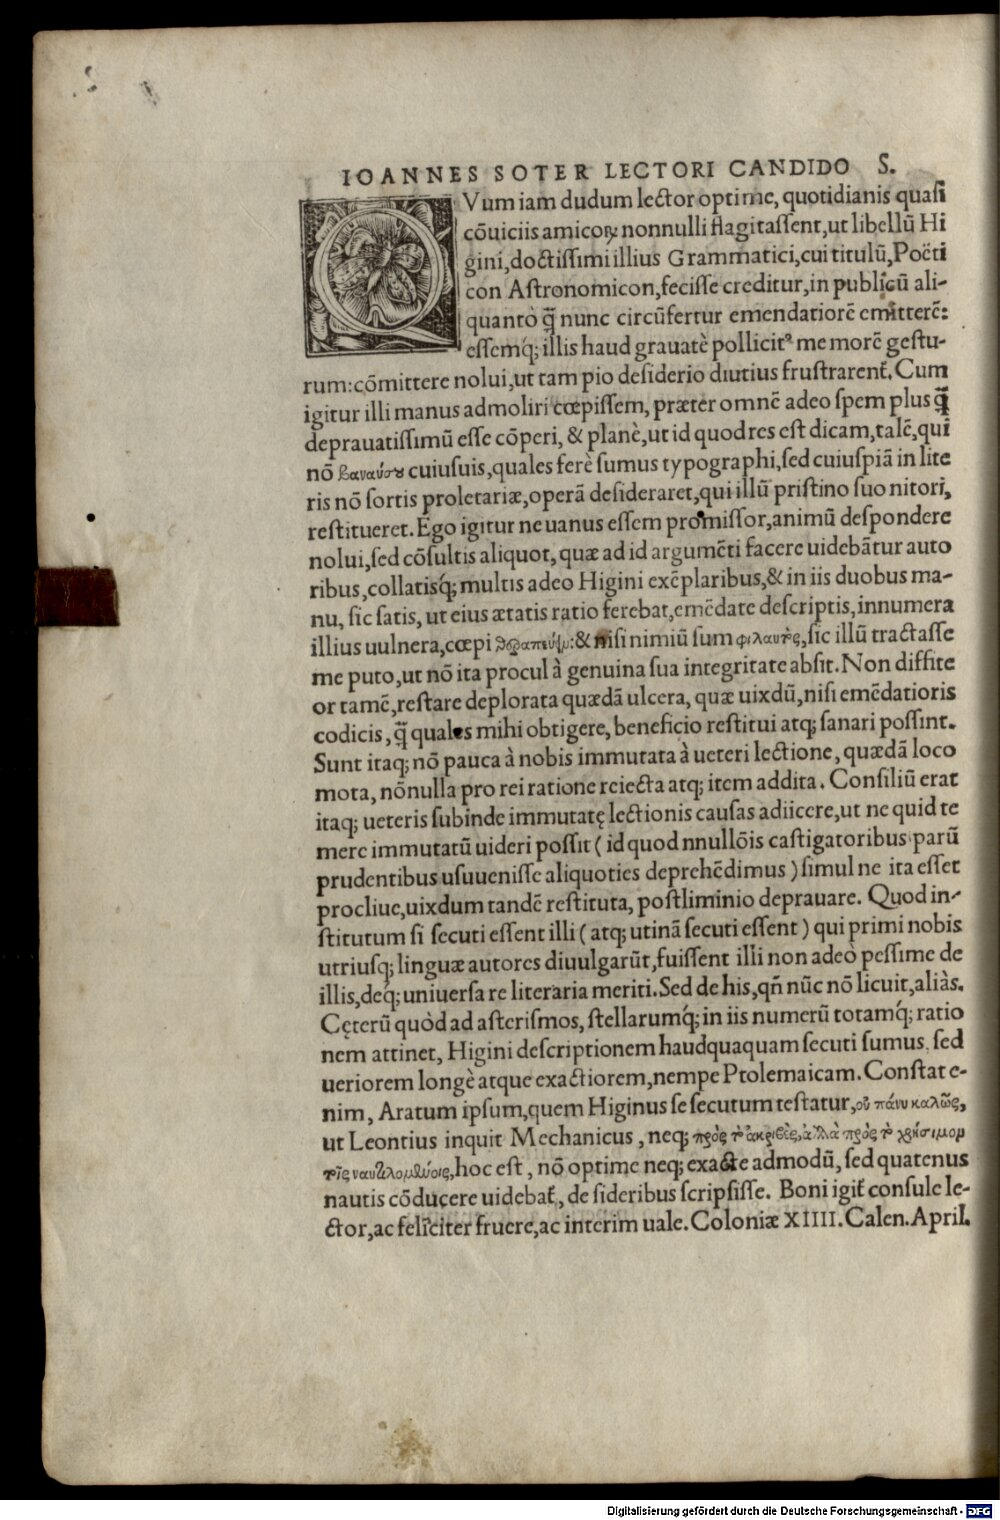 IOANNES SOTER LECTORI CANDIDO S.
QVum iam dudum lector optime, quotidianis quasi
cõuiciis amicoꝝ nonnulli flagitassent, ut libellũ Hi
gini, doctissimi illius Grammatici, cui titulũ, Poëti
con Astronomicon, fecisse creditur, in publicũ ali-
quantò q̃ nunc circũfertur emendatiorẽ emitterẽ:
essemq́; illis haud grauatè pollicitꝰ me morẽ gestu-
rum: cõmittere nolui, ut tam pio desiderio diutius frustrarent̃. Cum
igitur illi manus admoliri cœpissem, præter omnẽ adeo spem plus q̃
deprauatissimũ esse cõperi, & planè, ut id quod res est dicam, talẽ, qui
nõ βαναύσου cuiusuis, quales ferè sumus typographi, sed cuiuspiã in lite
ris nõ sortis proletariæ, operã desideraret, qui illũ pristino suo nitori,
restitueret. Ego igitur ne uanus essem promissor, animũ despondere
nolui, sed cõsultis aliquot, quæ ad id argumẽti facere uidebãtur auto
ribus, collatisq́; multis adeo Higini exẽplaribus, & in iis duobus ma-
nu, sic satis, ut eius ætatis ratio ferebat, emẽdate descriptis, innumera
illius uulnera, cœpi θεραπεύειν: & nisi nimiũ sum φιλαυτὴς, sic illũ tractasse
me puto, ut nõ ita procul à genuina sua integritate absit. Non diffite
or tamẽ, restare deplorata quædã ulcera, quæ uixdũ, nisi emẽdatioris
codicis, q̃ quales mihi obtigere, beneficio restitui atq; sanari possint.
Sunt itaq; nõ pauca à nobis immutata à ueteri lectione, quædã loco
mota, nõnulla pro rei ratione reiecta atq; item addita. Consiliũ erat
itaq; ueteris subinde immutatę lectionis causas adiicere, ut ne quid te
mere immutatũ uideri possit ( id quod nnullõis castigatoribus parũ
prudentibus usuuenisse aliquoties deprehẽdimus ) simul ne ita esset
procliue, uixdum tandẽ restituta, postliminio deprauare. Quod in-
stitutum si secuti essent illi ( atq; utinã secuti essent ) qui primi nobis
utriusq; linguæ autores diuulgarũt, fuissent illi non adeò pessime de
illis, deq́; uniuersa re literaria meriti. Sed de his, qñ nũc nõ licuit, aliàs.
Cęterũ quòd ad asterismos, stellarumq́; in iis numerũ totamq́; ratio
nem attinet, Higini descriptionem haudquaquam secuti sumus, sed
ueriorem longè atque exactiorem, nempe Ptolemaicam. Constat e-
nim, Aratum ipsum, quem Higinus se secutum testatur, οὐ πάνυ καλῶς,
ut Leontius inquit Mechanicus, neq; πρὸς τὸ ἀκριβὲς, ἀλλὰ πρὸς τὸ χρήσιμον
τοῖς ναυτιλομένοις, hoc est, nõ optime neq; exacte admodũ, sed quatenus
nautis cõducere uidebat̃, de sideribus scripsisse. Boni igit̃ consule le-
ctor, ac feliciter fruere, ac interim uale. Coloniæ XIIII. Calen. April.
Digitalisierung gefördert durch die Deutsche Forschungsgemeinschaft - DFG